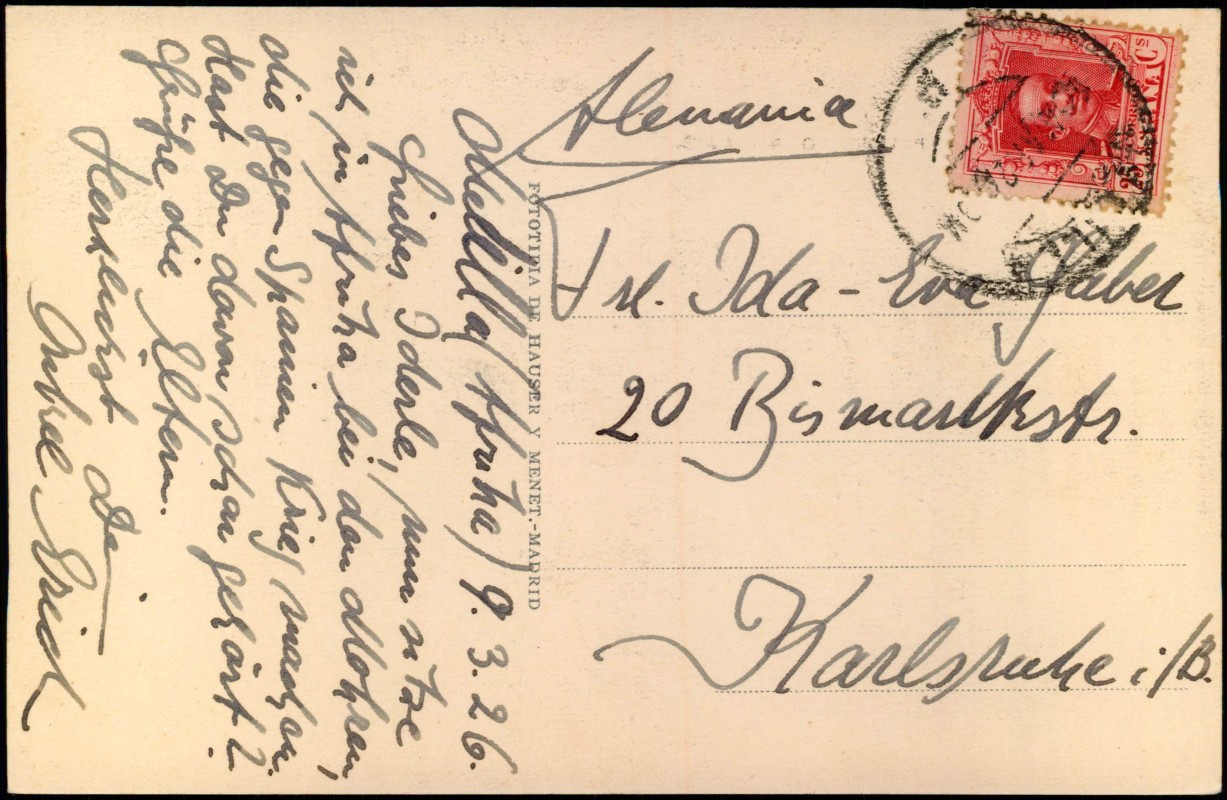 Melilla (Afrika) 9.3.26.
Liebes Iderle, nun sitze
ich in Afrika bei den Mohren,
die gegen Spanien Krieg machen.
Hast Du davon schon gehört?
Grüße die Eltern.
Herzlichst Dein
Onkel Erich
FOTOTIPIA DE HAUSER Y MENET.-MADRID
Alemania
Frl. Ida-Eva Faber
20 Bismarckstr.
Karlsruhe i/B.